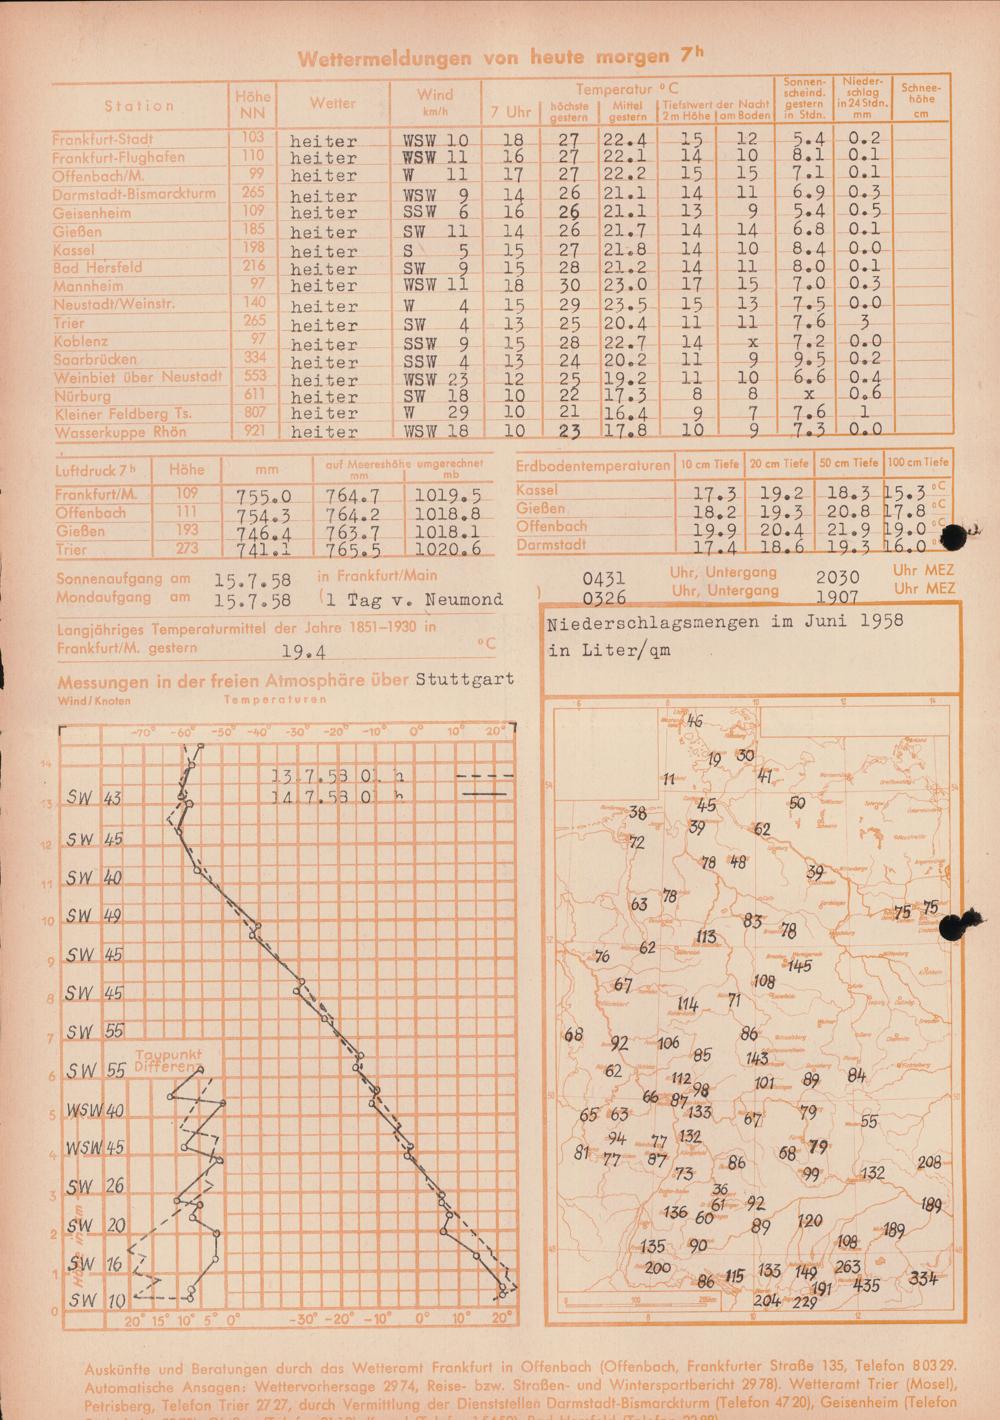 Wettermeldungen von heute morgen 7ʰ
Station Höhe NN Wetter Wind km/h Temperatur °C 7 Uhr höchste gestern Mittel gestern Tiefstwert der Nacht 2 m Höhe am Boden Sonnenscheind. gestern in Stdn. Niederschlag in 24 Stdn. mm Schneehöhe cm
Frankfurt-Stadt 103 heiter WSW 10 18 27 22.4 15 12 5.4 0.2
Frankfurt-Flughafen 110 heiter WSW 11 16 27 22.1 14 10 8.1 0.1
Offenbach/M. 99 heiter W 11 17 27 22.2 15 15 7.1 0.1
Darmstadt-Bismarckturm 265 heiter WSW 9 14 26 21.1 14 11 6.9 0.3
Geisenheim 109 heiter SSW 6 16 26 21.1 13 9 5.4 0.5
Gießen 185 heiter SW 11 14 26 21.7 14 14 6.8 0.1
Kassel 198 heiter S 5 15 27 21.8 14 10 8.4 0.0
Bad Hersfeld 216 heiter SW 9 15 28 21.2 14 11 8.0 0.1
Mannheim 97 heiter WSW 11 18 30 23.0 17 15 7.0 0.3
Neustadt/Weinstr. 140 heiter W 4 15 29 23.5 15 13 7.5 0.0
Trier 265 heiter SW 4 13 25 20.4 11 11 7.6 3
Koblenz 97 heiter SSW 9 15 28 22.7 14 x 7.2 0.0
Saarbrücken 334 heiter SSW 4 13 24 20.2 11 9 9.5 0.2
Weinbiet über Neustadt 553 heiter WSW 23 12 25 19.2 11 10 6.6 0.4
Nürburg 611 heiter SW 18 10 22 17.3 8 8 x 0.6
Kleiner Feldberg Ts. 807 heiter W 29 10 21 16.4 9 7 7.6 1
Wasserkuppe Rhön 921 heiter WSW 18 10 23 17.8 10 9 7.3 0.0
Luftdruck 7ʰ Höhe mm auf Meereshöhe umgerechnet mm mb
Frankfurt/M. 109 755.0 764.7 1019.5
Offenbach 111 754.3 764.2 1018.8
Gießen 193 746.4 763.7 1018.1
Trier 273 741.1 765.5 1020.6
Erdbodentemperaturen 10 cm Tiefe 20 cm Tiefe 50 cm Tiefe 100 cm Tiefe
Kassel 17.3 19.2 18.3 15.3 °C
Gießen 18.2 19.3 20.8 17.8 °C
Offenbach 19.9 20.4 21.9 19.0 °C
Darmstadt 17.4 18.6 19.3 16.0 °C
Sonnenaufgang am 15.7.58 in Frankfurt/Main 0431 Uhr, Untergang 2030 Uhr MEZ
Mondaufgang am 15.7.58 (1 Tag v. Neumond ) 0326 Uhr, Untergang 1907 Uhr MEZ
Langjähriges Temperaturmittel der Jahre 1851–1930 in
Frankfurt/M. gestern 19.4 °C
Messungen in der freien Atmosphäre über Stuttgart
Wind/Knoten Temperaturen
-70° -60° -50° -40° -30° -20° -10° 0° 10° 20°
13.7.58 01 h
14.7.58 01 h
14
13 SW 43
12 SW 45
11 SW 40
10 SW 49
9 SW 45
8 SW 45
7 SW 55
Taupunkt
Differenz
6 SW 55
5 WSW 40
4 WSW 45
3 SW 26
2 SW 20
1 SW 16
0 SW 10
20° 15° 10° 5° 0° -30° -20° -10° 0° 10° 20°
Niederschlagsmengen im Juni 1958
in Liter/qm
6 8 10 12 14
46
19 30
11 41
38 45 50
72 39 62
78 48 39
63 78
83 78 75 75
76 62 113
145
67 108
114 71
68 92 106 86
85 143
62 112 101 89 84
66 87 98
65 63 133 67 79 55
94 77 132 68 79
81 77 87 86 208
73 99 132
36
136 61 92 189
60 89 120 189
135 90 108
200 86 115 133 149 263 334
191 435
204 229
Auskünfte und Beratungen durch das Wetteramt Frankfurt in Offenbach (Offenbach, Frankfurter Straße 135, Telefon 8 03 29.
Automatische Ansagen: Wettervorhersage 29 74, Reise- bzw. Straßen- und Wintersportbericht 29 78). Wetteramt Trier (Mosel),
Petrisberg, Telefon Trier 27 27, durch Vermittlung der Dienststellen Darmstadt-Bismarckturm (Telefon 47 20), Geisenheim (Telefon